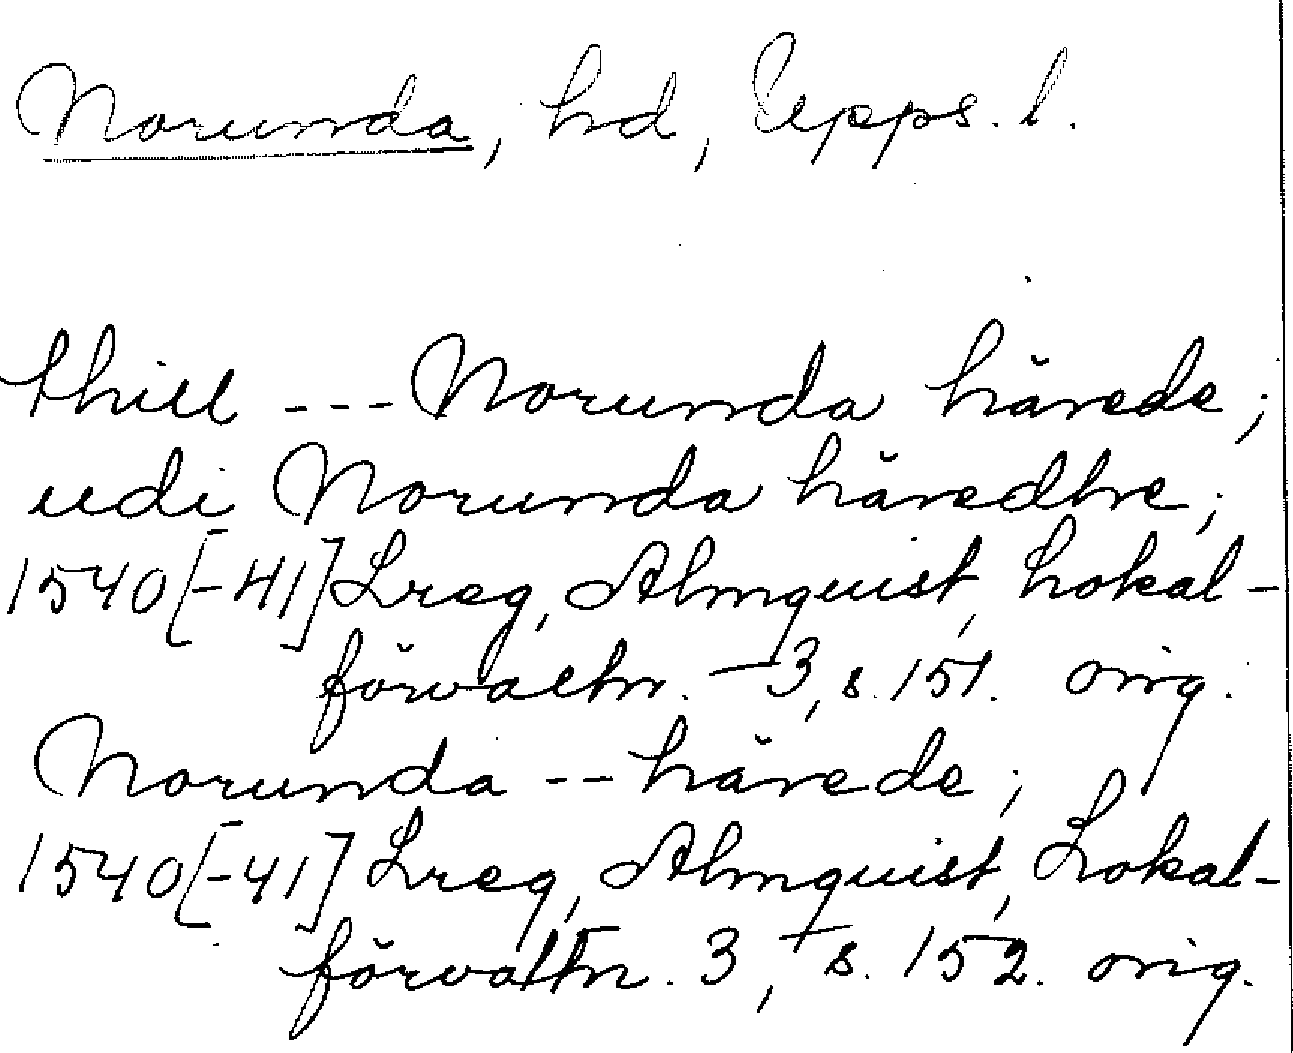 Norunda, hd, Upps. l.
thill --- Norunda härede;
udi Norunda häredhe;
1540[-41] Lreg, Almquist, Lokal-
förvaltn. 3, s. 151. orig.
Norunda -- härede;
1540[-41] Lreg, Almquist, Lokal-
förvaltn. 3, s. 152. orig.